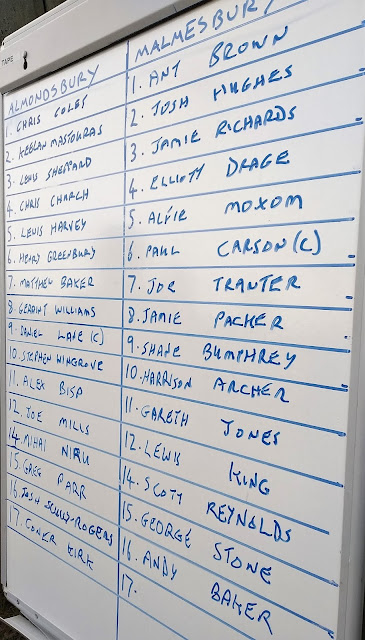 TAPE
ALMONDSBURY
1. CHRIS COLES
2. KEELAN MASTOURAS
3. LEWIS SHEPPARD
4. CHRIS CHURCH
5. LEWIS HARVEY
6. HENRY GREENBURY
7. MATTHEW BAKER
8 GERAINT WILLIAMS
9. DANIEL LANE (C)
10. STEPHEN WINGROVE
11. ALEX BISP
12. JOE MILLS
14. MIHAI NIKU
15. GREG PARR
16. JOSH SCULLY-ROGERS
17. CONER KIRK
MALMESBURY
1. ANT BROWN
2. JOSH HUGHES
3. JAMIE RICHARDS
4. ELLIOTT DRAGE
5. ALFIE MOXOM
6. PAUL CARSON (C)
7. JOE TRANTER
8. JAMIE PACHER
9. SHANE BUMPHREY
10. HARRISON ARCHER
11. GARETH JONES
12. LEWIS KING
14. SCOTT REYNOLDS
15. GEORGE STONE
16. ANDY BAKER
17.